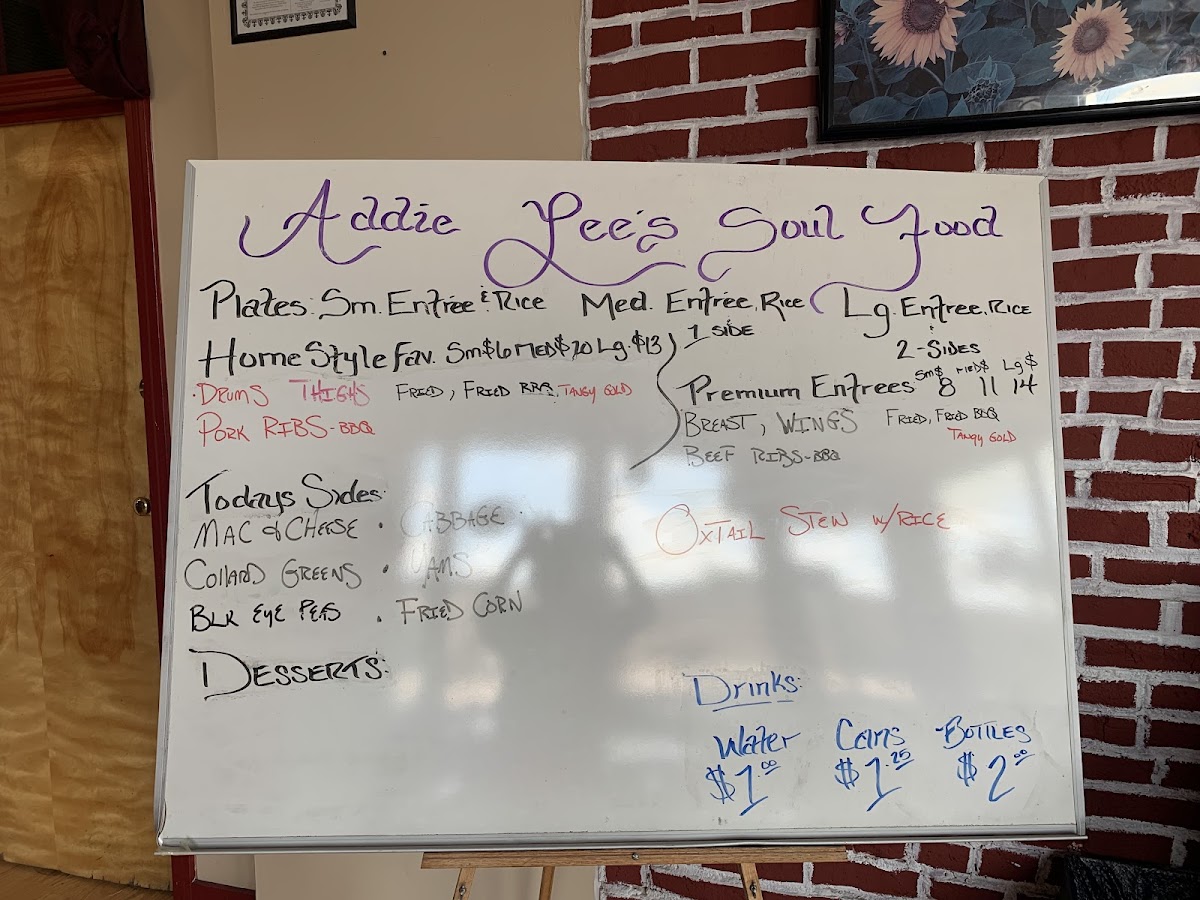 Addie Lee's Soul Food
Plates: Sm. Entrée & Rice Med. Entrée, Rice Lg. Entree, Rice
1 SIDE
2-SIDES
Home Style Fav. Sm$6 MED$10 Lg.$13
DRUMS THIGHS FRIED, FRIED BBQ, TANGY GOLD
PORK RIBS-BBQ
Premium Entrees Sm$ 8 MED$ 11 Lg$ 14
BREAST, WINGS FRIED, FRIED BBQ
TANGY GOLD
BEEF RIBS-BBQ
OXTAIL STEW W/RICE
Todays Sides:
MAC & CHEESE • CABBAGE
COLLARD GREENS • YAMS
BLK EYE PEAS • FRIED CORN
DESSERTS:
Drinks:
Water Cans -BOTTLES
$1.00 $1.25 $2.00